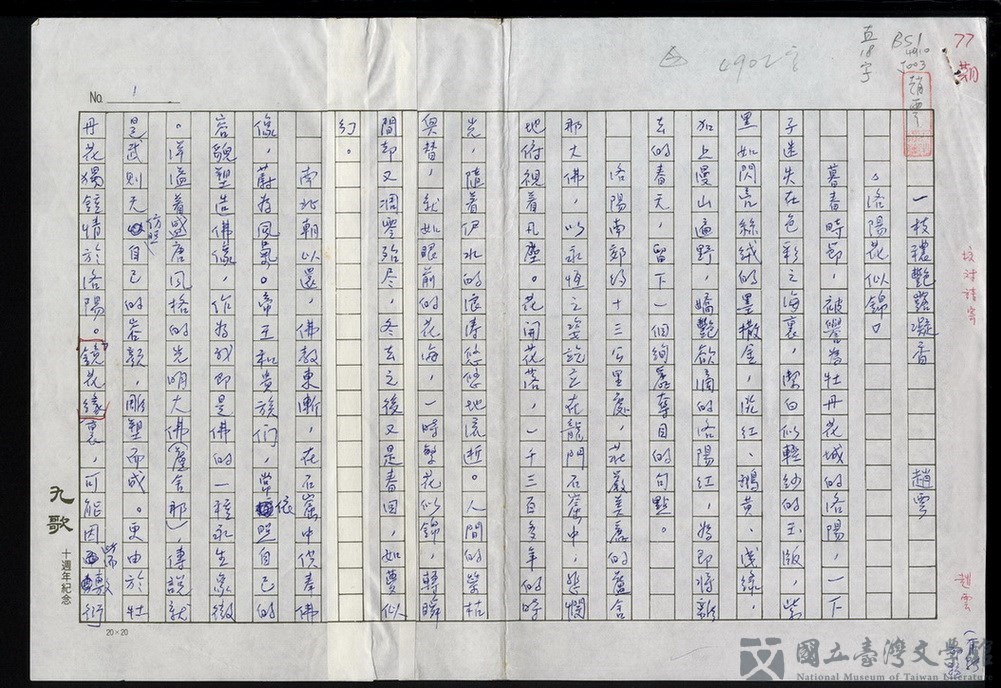 77期
BS1
4910
7003
真18字
4902字
趙雲
No. 1
一枝穠艷露凝香　趙雲
。洛陽花似錦。
暮春時節，被譽為牡丹花城的洛陽，一下
子迷失在色彩之海裏，潔白似輕紗的玉版，紫
黑如閃亮絲絨的墨撒金，淺紅、鵝黃、淺綠，
加上漫山遍野，嬌艷欲滴的洛陽紅，為即將離
去的春天，留下一個絢麗奪目的句點。
洛陽南郊約十三公里處，莊嚴美麗的盧舍
那大佛，以永恆之姿訖立在龍門石崖中，悲憫
地俯視着凡塵。花開花落，一千三百多年的時
光，隨着伊水的浪濤悠悠地流逝。人間的榮枯
興替，就如眼前的花海，一時繁花似錦，轉瞬
間却又凋零殆尽，冬去之後又是春回，如夢似
幻。
南北朝以還，佛教東漸，在石崖中供奉佛
像，蔚為風氣。帝王和貴族們，常依照自己的
容貌塑造佛像，作為我即是佛的一種永生象徵
。洋溢着盛唐風格的光明大佛（盧舍那），傳說就
是武則天仿照自己的容顏，雕塑而成。更由於牡
丹花獨鍾情於洛陽。鏡花緣裏，可能因
校對請寄
趙雲
九歌
十週年紀念
20×20
國立臺灣文學館
National Museum of Taiwan Literature